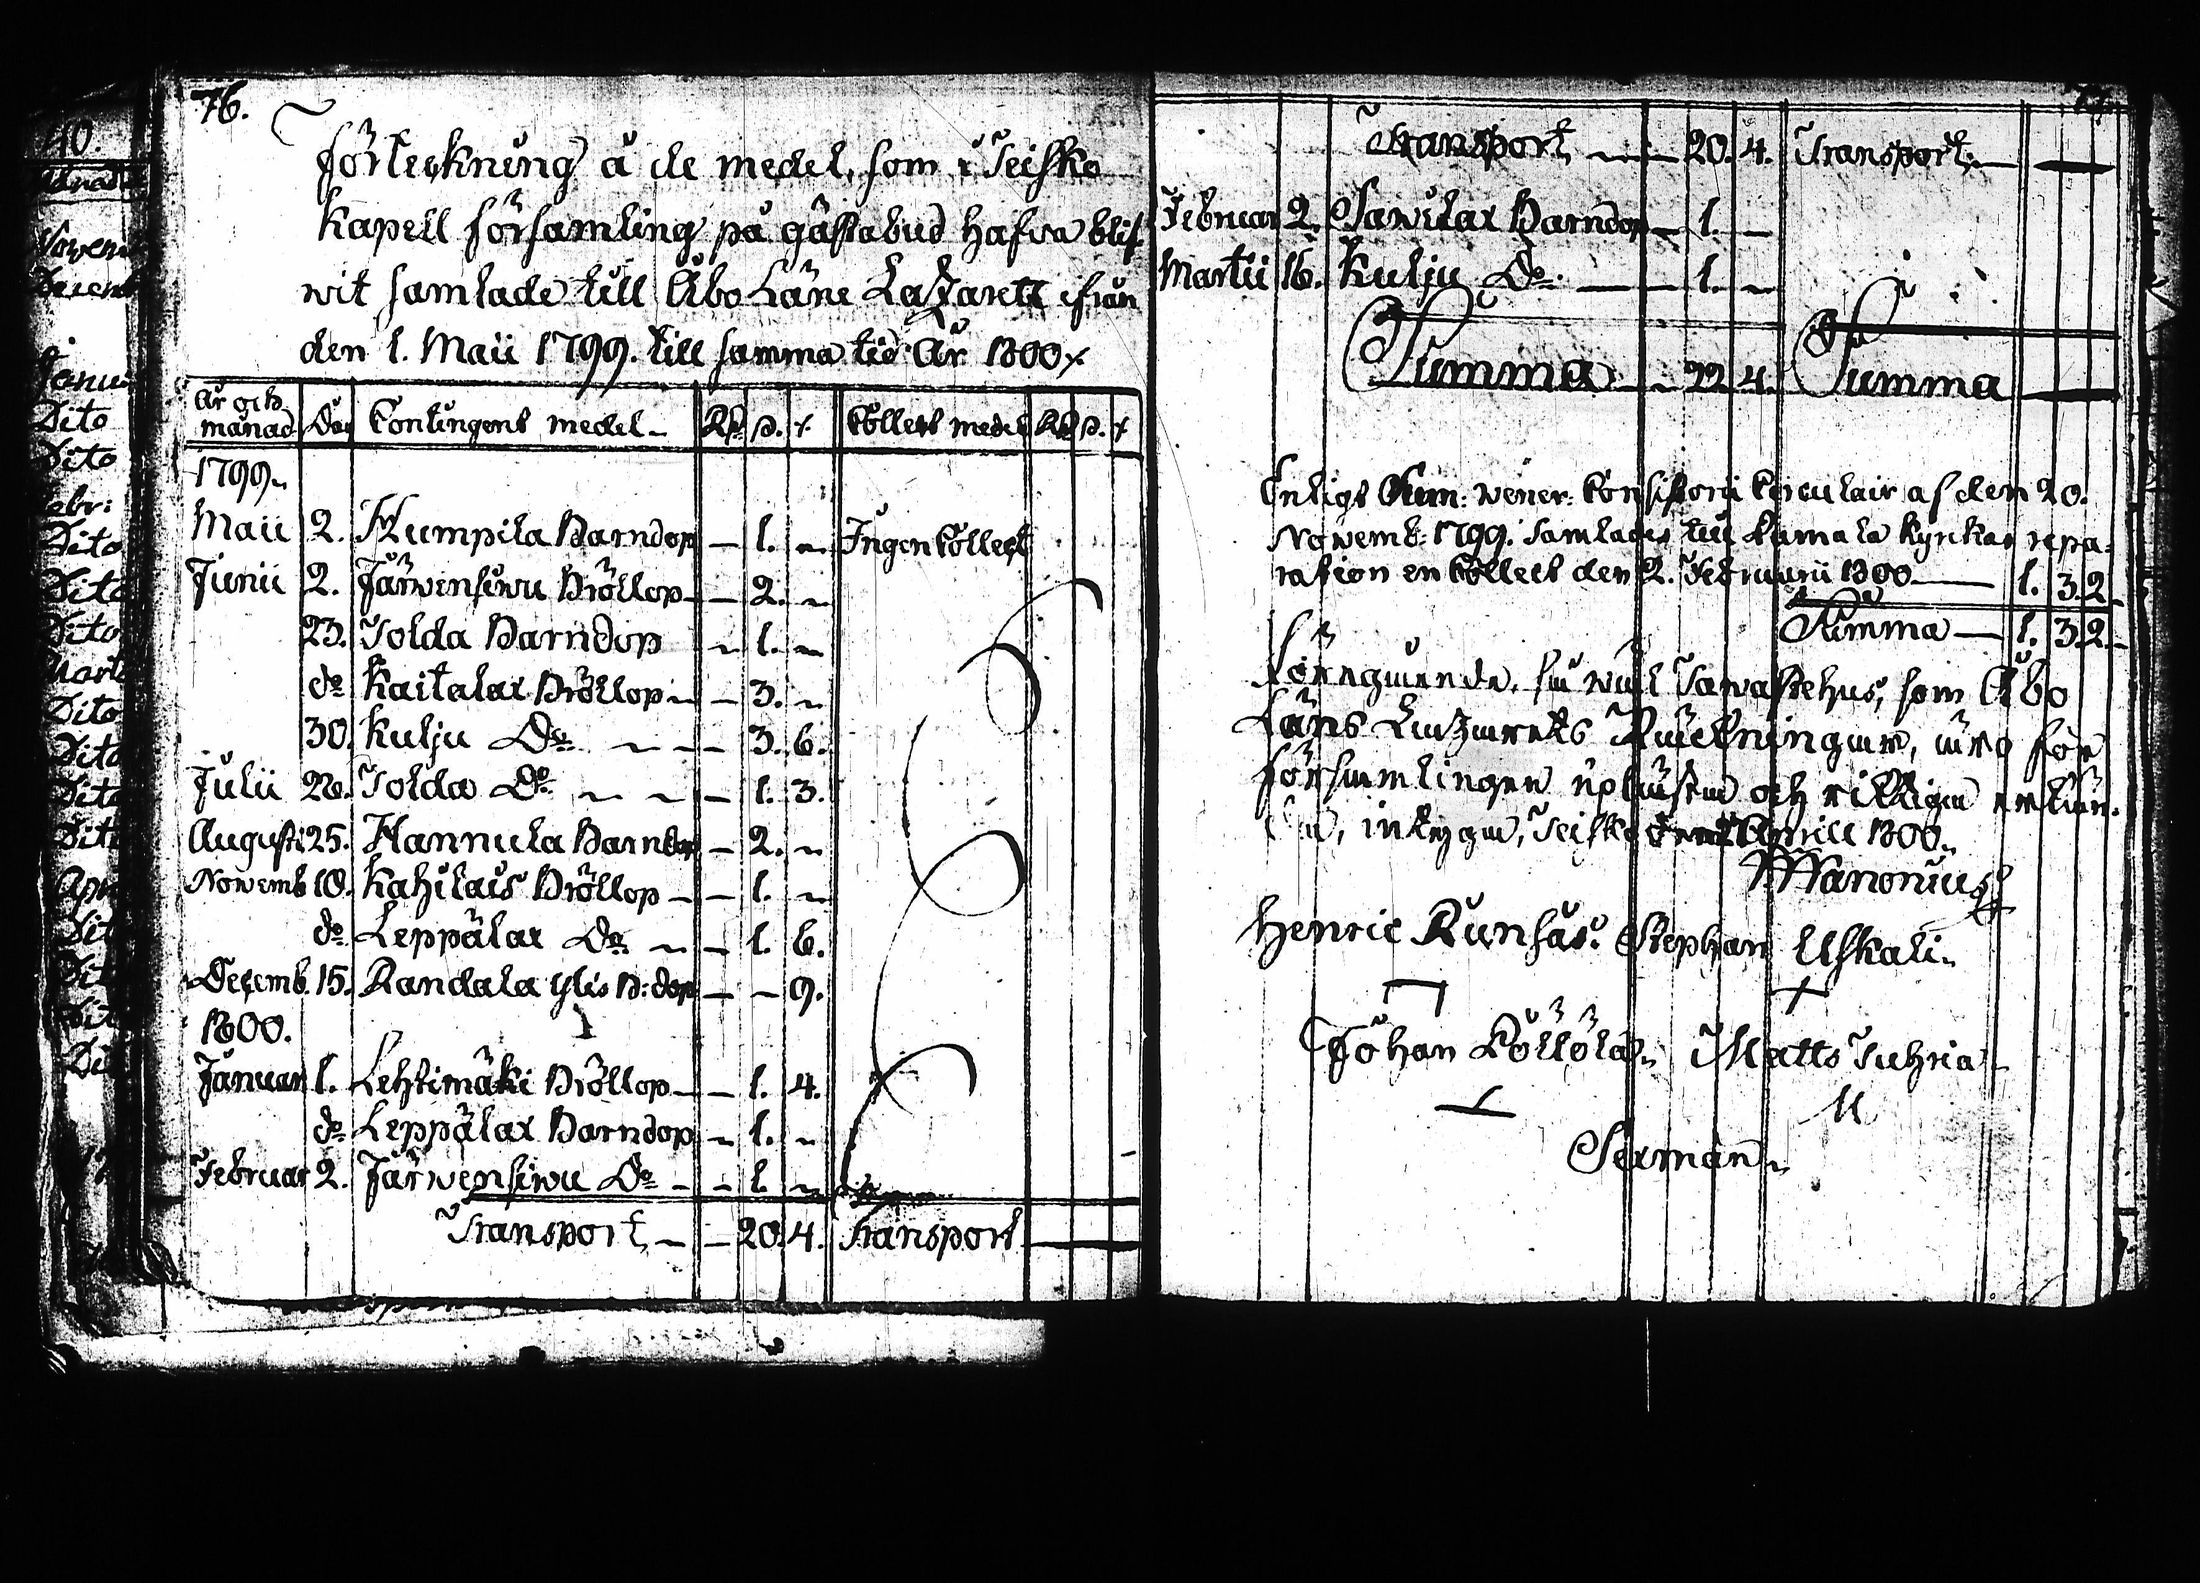 76.
Förteckning å de medel, som i Teisko
Kapell församling på gästabud hafva blif-
wit samlade till Åbo Läns Lazarett ifrån
den 1. Maii 1799. till samma tid År 1800.
År och månad | Dag | Contingent medel | Rd | s. | r | Collect medel | Rd | s. | r
1799.
Maii 2. Kumpila Barndop — 1. — Ingen Collect
Junii 2. Järwensiwu Bröllop — 2. —
23. Tolda Barndop — 1. —
do Kaitalax Bröllop — 3. —
30. Kulju Do — 3. 6.
Julii 28. Tolda Do — 1. 3.
Augusti 25. Hannula Barndop — 2. —
Novemb 10. Kahilais Bröllop — 1. —
do Leppälax Do — 1. 6.
Decemb. 15. Randala Ylis B:dop — — 9.
1800.
Januari 1. Lehtimäki Bröllop — 1. 4.
do Leppälax Barndop — 1. —
Februar 2. Järwensiwu Do — 1. —
Transport — 20. 4. Transport —
77.
Transport — 20. 4. Transport —
Februar 2. Sawulax Barndop — 1. —
Martii 16. Kulju Do — 1. —
Summa — 22. 4. Summa —
Enligt Wener: Consistorii Circulair af den 20.
Novemb: 1799. Samlades till Kyrkas repa-
ration en Collect den 2. Februarii 1800 — 1. 32.
Summa — 1. 32.
Föregående, så wäl Tawastehus, som Åbo
Läns Lazaretts Räkningar, äro för
församlingen upläste och riktiga erkän-
da, intygar, Teisko Aprill 1800.
Wanonius
Henric Runsas. Stephan Uskali.
Johan Löllölä. Matts Tuhria
M
Sexmän.
40.
Dito
Dito
Dito
Dito
Dito
Dito
Dito
Dito